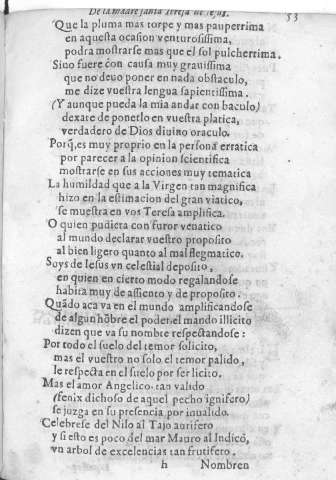 De la madre santa Teresa de Iesus. 53
Que la pluma mas torpe y mas pauperrima
en aquesta ocasion venturosissima,
podra mostrarse mas que el sol pulcherrima.
Sino fuere con causa muy grauissima
que no deuo poner en nada obstaculo,
me dize vuestra lengua sapientissima.
(Y aunque pueda la mia andar con baculo)
dexare de ponerlo en vuestra platica,
verdadero de Dios diuino oraculo.
Porq̃, es muy proprio en la persona erratica
por parecer a la opinion scientifica
mostrarse en sus acciones muy tematica
La humildad que a la Virgen tan magnifica
hizo en la estimacion del gran viatico,
se muestra en vos Teresa amplifica.
O quien pudiera con furor venatico
al mundo declarar vuestro proposito
al bien ligero quanto al mal flegmatico.
Soys de Iesus vn celestial deposito,
en quien en cierto modo regalandose
habita muy de assiento y de proposito.
Quãdo aca va en el mundo amplificandose
de algun hõbre el poder, el mando illicito
dizen que va su nombre respectandose:
Por todo el suelo del temor solicito,
mas el vuestro no solo el temor palido,
le respecta en el suelo por ser licito.
Mas el amor Angelico tan valido
(fenix dichoso de aquel pecho ignifero)
se juzga en su presencia por inualido.
Celebrese del Nilo al Tajo aurifero
y si esto es poco del mar Mauro al Indico,
vn arbol de excelencias tan frutifero.
h Nombren